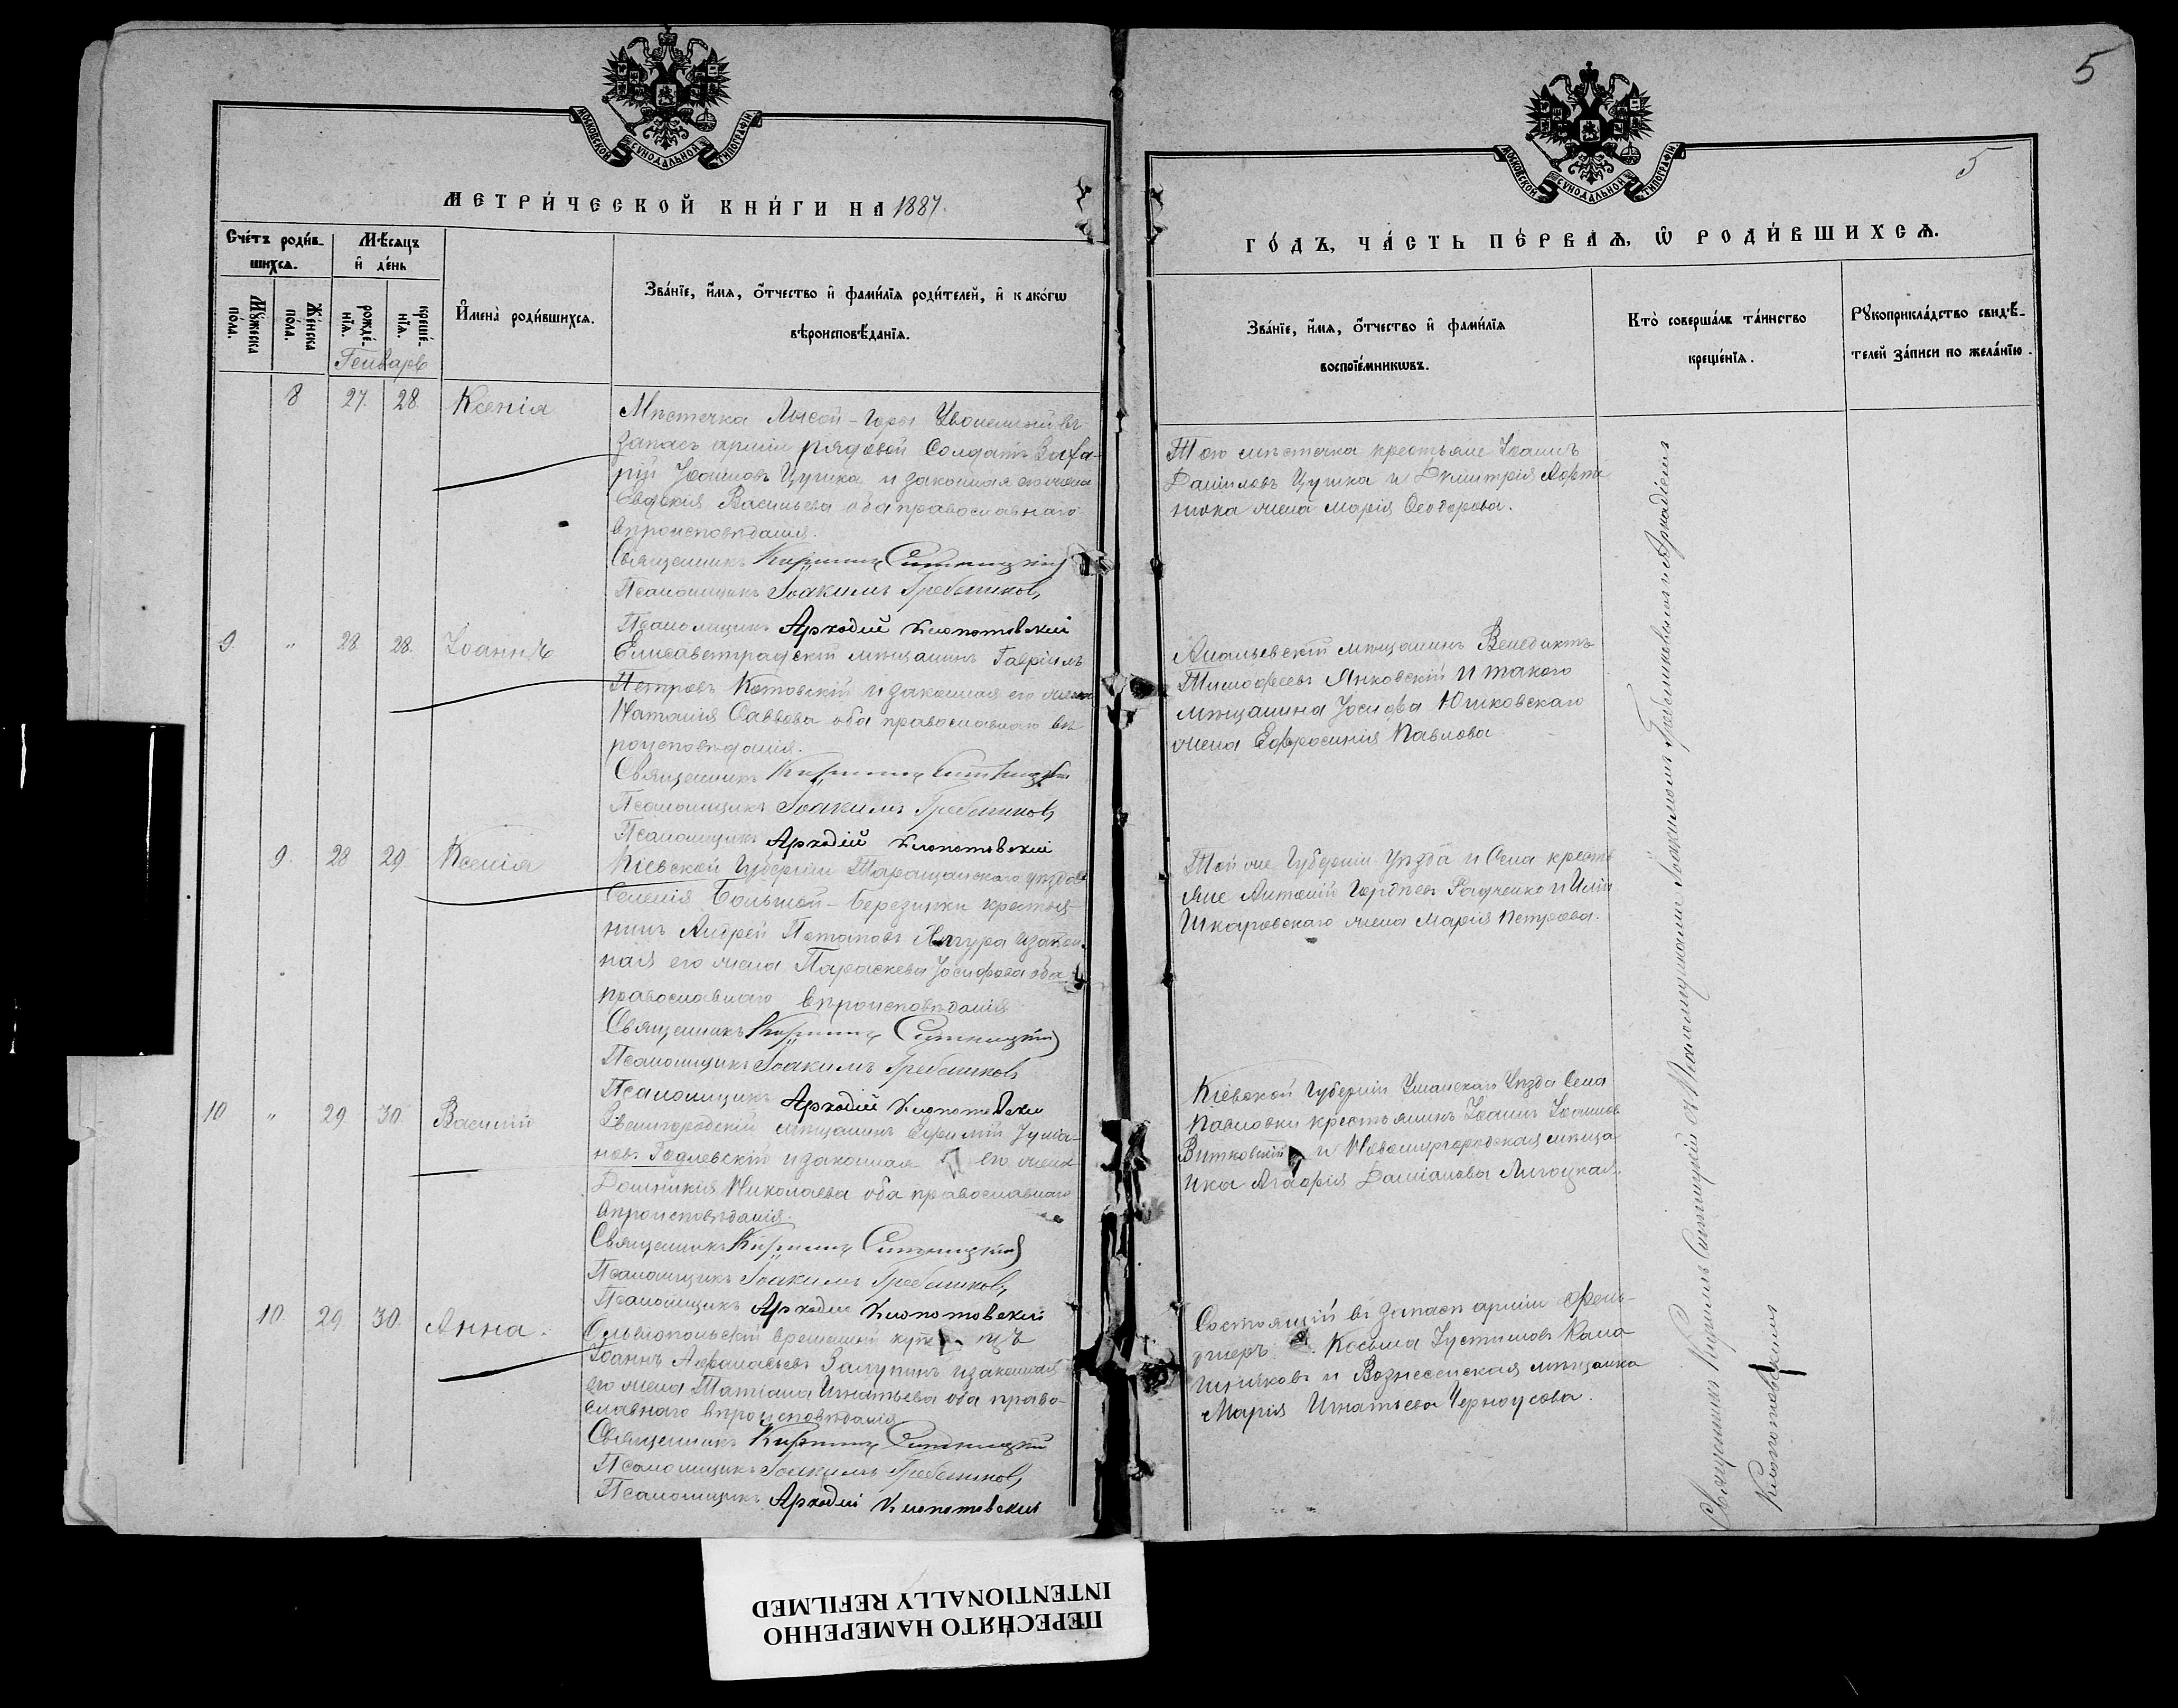 5
МОСКОВСКОЙ СѴНОДАЛЬНОЙ ТИПОГРАФІИ
МЕТРИ́ЧЕСКОЙ КНИ́ГИ НА 1887.
Сче́тъ роди́вшихся.
Мѣ́сяцъ и҆ де́нь
Мꙋ́жеска по́ла.
Же́нска по́ла.
рожде́нїя.
креще́нїя.
И҆мена̀ роди́вшихся.
Зва́нїе, и҆́мя, ѻ҆́тчество и҆ фами́лїя роди́телей, и҆ како́гѡ вѣроисповѣ́данїя.
Генварь
8 27. 28. Ксенія
Мѣстечка Лысой-Горы Уволенный въ
запасъ арміи рядовой Солдатъ Заха-
рій Іоанновъ Цушка и законная его жена
Евдокія Васильева оба православнаго
вѣроисповѣданія.
Священникъ Кириллъ Ситницкій
Псаломщикъ Іоакимъ Гребенниковъ
Псаломщикъ Аркадій Клопотовскій
9. „ 28. 28. Іоаннъ
Елисаветградскій мѣщанинъ Гавріилъ
Петровъ Котовскій и законная его жена
Наталія Саввова оба православнаго вѣ
роисповѣданія.
Священникъ Кириллъ Ситницкій
Псаломщикъ Іоакимъ Гребенниковъ
Псаломщикъ Аркадій Клопотовскій
9. 28 29. Ксенія
Кіевской Губерніи Таращанского уѣзда
Селенія Большой-Березянки крестья
нинъ Андрей Потаповъ и закон
ная его жена Параскева Іосифова оба
православнаго вѣроисповѣданія
Священникъ Кириллъ Ситницкій
Псаломщикъ Іоакимъ Гребенниковъ
Псаломщикъ Аркадій Клопотовскій
10 „ 29 30. Василій
Звенигородскій мѣщанинъ Ефимій Іуліа-
новъ и законная его жена
Домникія Николаева оба православнаго
вѣроисповѣданія.
Священникъ Кириллъ Ситницкій
Псаломщикъ Іоакимъ Гребенниковъ
Псаломщикъ Аркадій Клопотовскій
10. 29. 30. Анна.
Ольвіопольскій временный купецъ
Іоаннъ Аѳанасьевъ и законная
его жена Татіана Игнатьева оба право-
славнаго вѣроисповѣданія
Священникъ Кириллъ Ситницкій
Псаломщикъ Іоакимъ Гребенниковъ
Псаломщикъ Аркадій Клопотовскій
МОСКОВСКОЙ СѴНОДАЛЬНОЙ ТИПОГРАФІИ
5
ГО́ДЪ, ЧА́СТЬ ПЕ́РВАѦ, Ѡ҆ РОДИ́ВШИХСѦ.
Зва́нїе, и҆́мя, ѻ҆́тчество и҆ фами́лїя воспрїе́мникѡвъ.
Кто̀ соверша́лъ та́инство креще́нїя.
Рꙋкоприкла́дство свидѣ́телей за́писи по жела́нїю.
Того мѣстечка крестьяне Іоаннъ
Даніиловъ Цушка и Димитрія
жена Марія Ѳеодорова.
Ананьевскій мѣщанинъ Венедиктъ
Тимофеевъ Янковскій и такого
мѣщанина Іосифа Юшковскаго
жена Евфросинія Павлова.
Той же Губерніи уѣзда и Села кресть
яне Антоній Гордѣевъ Радченко и Иліи
Шкаровскаго жена Марія Петрова.
Кіевской Губерніи Уманскаго Уѣзда Села
Павловки крестьянинъ Іоаннъ Іоанновъ
Витковскій и Новомиргородская мѣща
нка Агафія Даміанова
Состоящій въ запасѣ арміи Фель-
дшеръ Косьма Іустиновъ
и Вознесенская мѣщанка
Марія Игнатьева Черноусова.
Священникъ Кириллъ Ситницкій съ Псаломщиками Іоакимомъ Гребенниковымъ и Аркадіемъ
Клопотовскимъ
ПЕРЕСНЯТО НАМЕРЕННО
INTENTIONALLY REFILMED